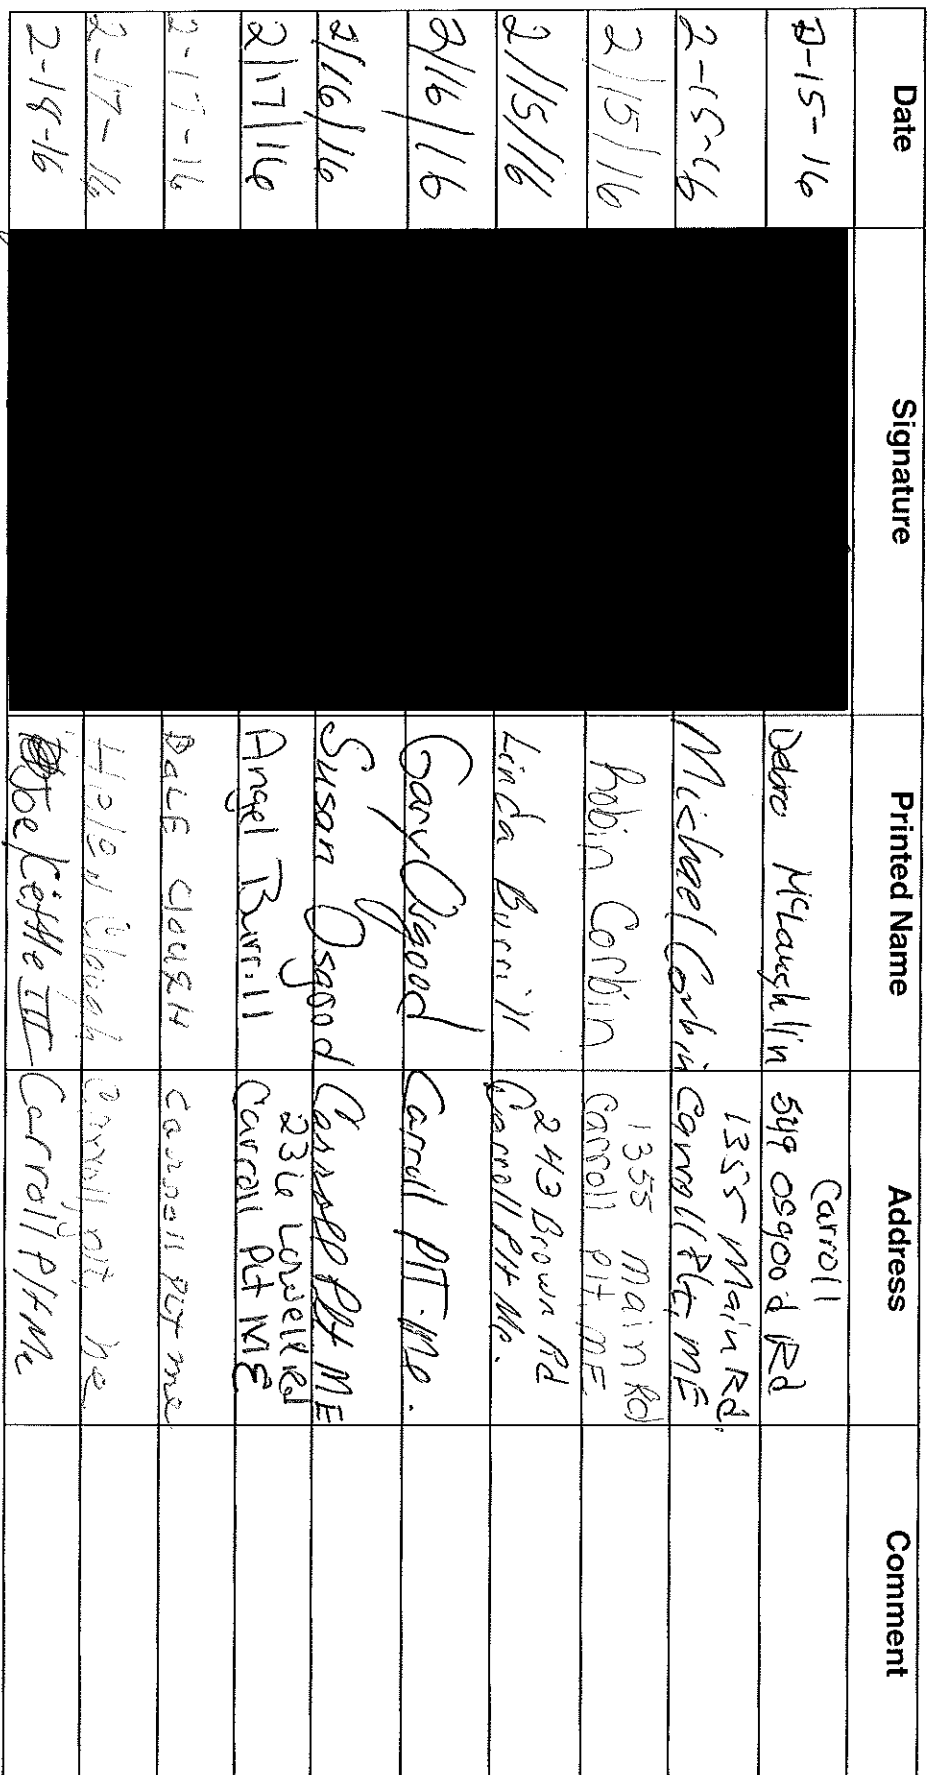 Date Signature Printed Name Address Comment
2-15-16 Debra McLaughlin 549 Osgood Rd
Carroll
2-15-16 Michael Corbin 1355 Main Rd.
Carroll Plt, ME
2/15/16 Robin Corbin 1355 Main Rd
Carroll Plt, ME
2/15/16 Linda Burrill 243 Brown Rd
Carroll Plt Me.
2/16/16 Gary Osgood Carroll PlT. Me.
2/16/16 Susan Osgood Carroll Plt ME
2/17/16 Angel Burrill 236 Lowell Rd
Carroll Plt ME
2-17-16 DALE CLOUGH Carroll PLT me
2-17-16 Helen Clough Carroll plt, Me
2-18-16 Joe Kittle III Carroll Plt Me